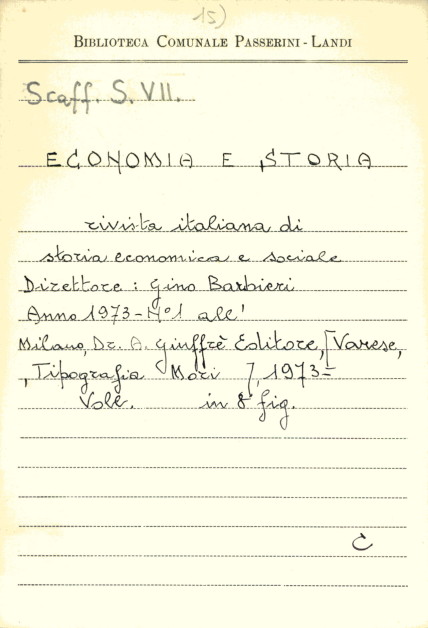 15)
BIBLIOTECA COMUNALE PASSERINI - LANDI
Scaff. S. VII.
ECONOMIA E STORIA
rivista italiana di
storia economica e sociale
Direttore : Gino Barbieri
Anno 1973 - N°1 all'
Milano, Dr. A. Giuffrè Editore, [Varese,
, Tipografia Mori ], 1973-
Voll. in 8° fig.
C